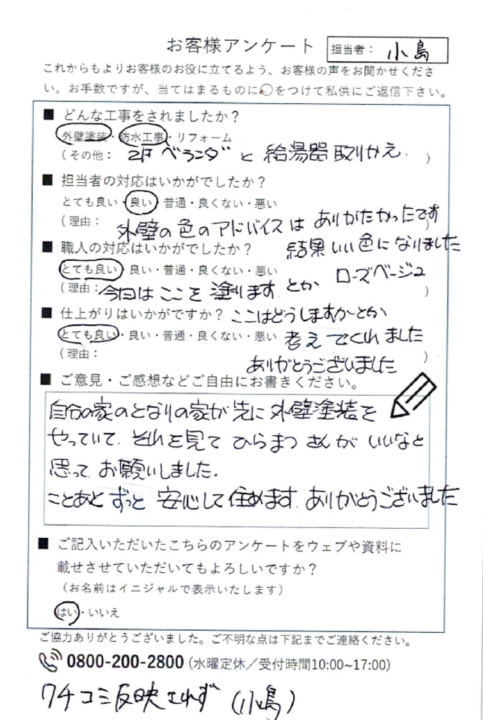 お客様アンケート 担当者： 小島
これからもよりお客様のお役に立てるよう、お客様の声をお聞かせくださ
い。お手数ですが、当てはまるものに○をつけて私供にご返信下さい。
■ どんな工事をされましたか？
外壁塗装・防水工事・リフォーム
（その他： 2F ベランダ と 給湯器 取りかえ. ）
■ 担当者の対応はいかがでしたか？
とても良い・良い・普通・良くない・悪い
（理由： 外壁の色のアドバイスは ありがたかったです
結果いい色になりました
ローズベージュ ）
■ 職人の対応はいかがでしたか？
とても良い・良い・普通・良くない・悪い
（理由： 今日は ここを 塗ります とか
ここはどうしますかとか
考えてくれました
ありがとうございました ）
■ 仕上がりはいかがですか？
とても良い・良い・普通・良くない・悪い
（理由： ）
■ ご意見・ご感想などご自由にお書きください。
自分の家のとなりの家が先に外壁塗装を
やっていて. それを見て ひらまつ さんが いいなと
思って お願いしました.
ことあと ずっと 安心して住めます. ありがとうございました
■ ご記入いただいたこちらのアンケートをウェブや資料に
載せさせていただいてもよろしいですか？
（お名前はイニシャルで表示いたします）
はい・いいえ
ご協力ありがとうございました。ご不明な点は下記までご連絡ください。
0800-200-2800（水曜定休／受付時間10:00~17:00）
クチコミ反映されず （小島）